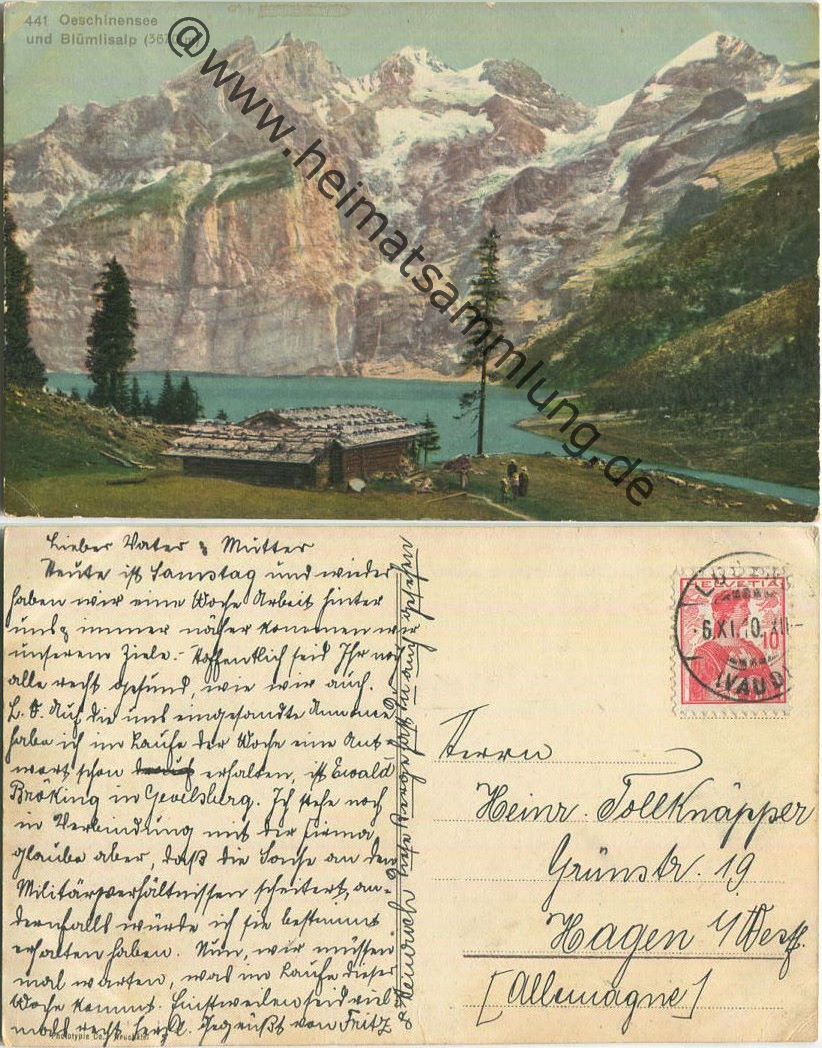 441 Oeschinensee
und Blümlisalp (3670 m)
@www.heimatsammlung.de
Lieber Vater & Mutter
Heute ist Samstag und wieder
haben wir eine Woche Arbeit hinter
uns & immer näher kommen wir
unserem Ziele.- Hoffentlich seid Ihr noch
alle recht gesund, wie wir auch.
L. V. Auf die uns eingesandte Annonce
habe ich im Laufe der Woche eine Ant-
wort schon erhalten, ist Ewald
Bröking in Gevelsberg. Ich stehe noch
in Verbindung mit der Firma,
glaube aber, daß die Sache an den
Militärverhältnissen scheitert, an-
dernfalls würde ich sie bestimmt
erhalten haben. Nun, wir müssen
mal warten, was im Laufe dieser
Woche kommt. Einstweilen seid viel-
mals recht herzl. gegrüßt von Fritz
& Heinrich
HELVETIA
10
6.XI.10.XII-
(VAUD)
Herrn
Heinr. Tollknäpper
Grünstr. 19
Hagen i/Westf.
[Allemagne]
Phototypie Co., Neuchâtel